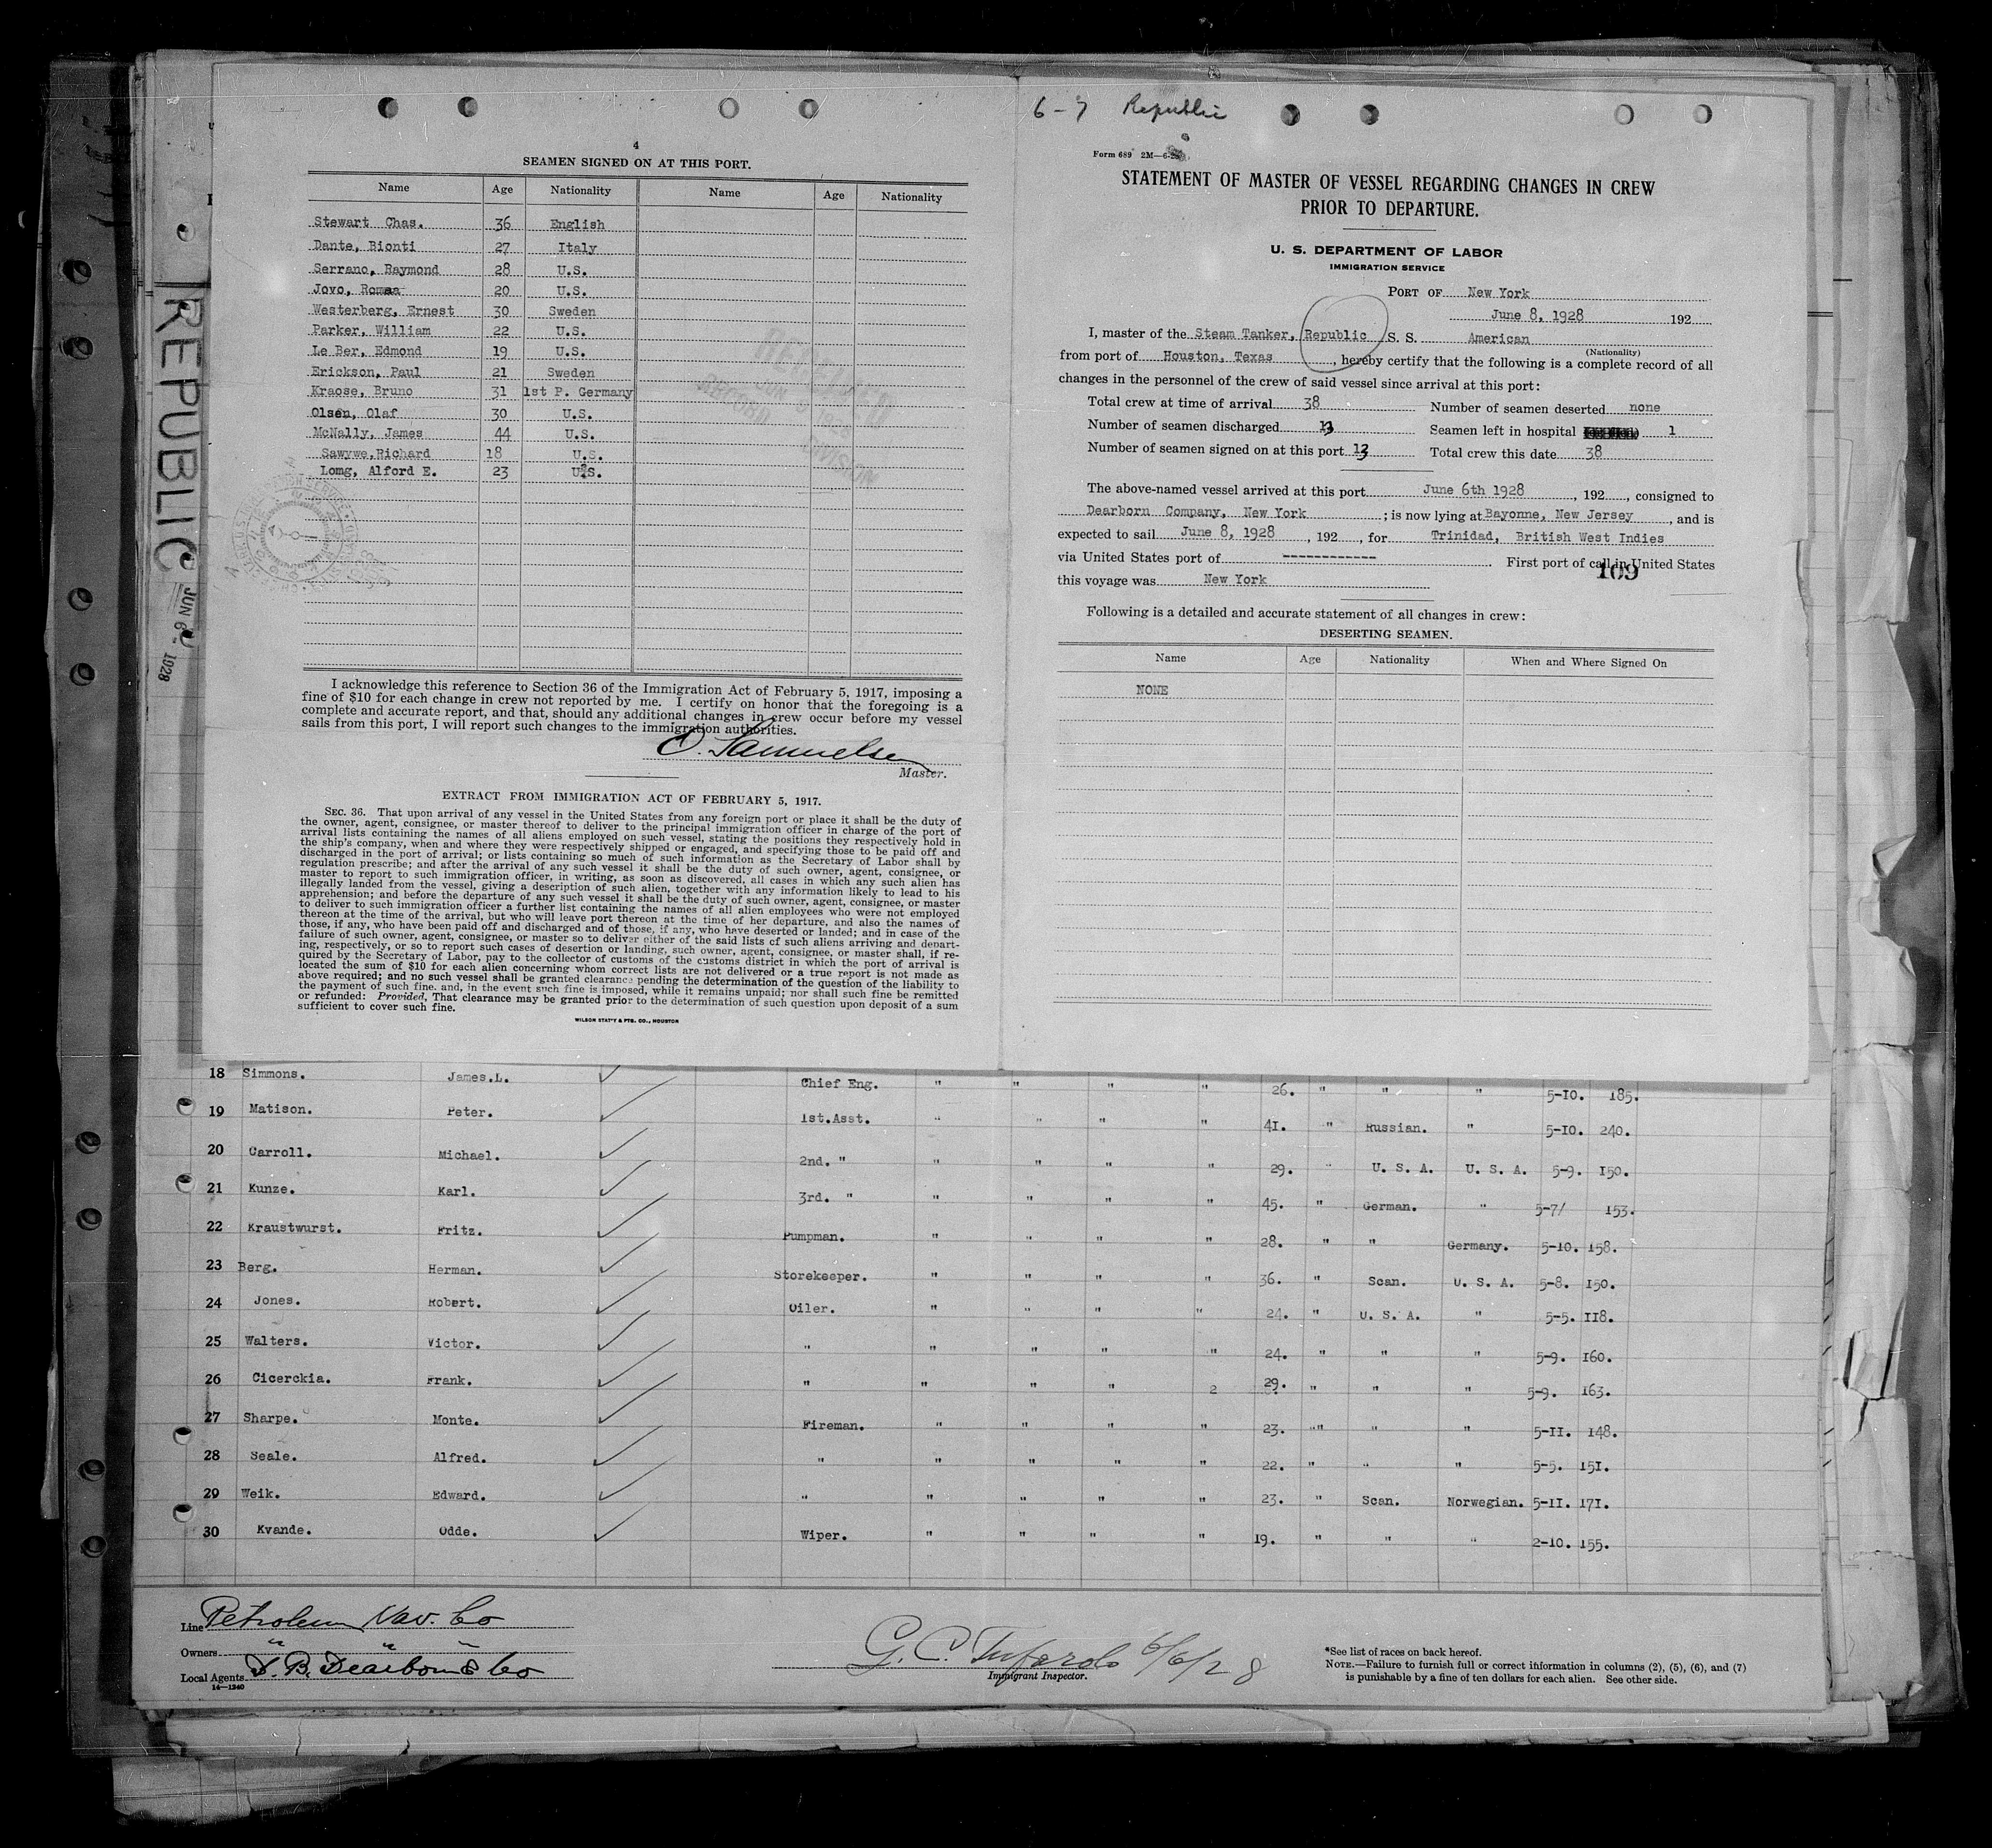 REPUBLIC
JUN 6 - 1928
4
SEAMEN SIGNED ON AT THIS PORT.
Name Age Nationality Name Age Nationality
Stewart Chas. 36 English
Dante, Bionti 27 Italy
Serrano, Raymond 28 U.S.
Jovo, Romaa 20 U.S.
Westerberg, Ernest 30 Sweden
Parker, William 22 U.S.
Le Ber, Edmond 19 U.S.
Erickson, Paul 21 Sweden
Kraose, Bruno 31 1st P. Germany
Olsen, Olaf 30 U.S.
McNally, James 44 U.S.
Sawywe,Richard 18 U.S.
Lomg, Alford E. 23 U.S.
RECORD DIVISION
I acknowledge this reference to Section 36 of the Immigration Act of February 5, 1917, imposing a
fine of $10 for each change in crew not reported by me. I certify on honor that the foregoing is a
complete and accurate report, and that, should any additional changes in crew occur before my vessel
sails from this port, I will report such changes to the immigration authorities.
O. Samuelsen
Master.
EXTRACT FROM IMMIGRATION ACT OF FEBRUARY 5, 1917.
SEC. 36. That upon arrival of any vessel in the United States from any foreign port or place it shall be the duty of
the owner, agent, consignee, or master thereof to deliver to the principal immigration officer in charge of the port of
arrival lists containing the names of all aliens employed on such vessel, stating the positions they respectively hold in
the ship's company, when and where they were respectively shipped or engaged, and specifying those to be paid off and
discharged in the port of arrival; or lists containing so much of such information as the Secretary of Labor shall by
regulation prescribe; and after the arrival of any such vessel it shall be the duty of such owner, agent, consignee, or
master to report to such immigration officer, in writing, as soon as discovered, all cases in which any such alien has
illegally landed from the vessel, giving a description of such alien, together with any information likely to lead to his
apprehension; and before the departure of any such vessel it shall be the duty of such owner, agent, consignee, or master
to deliver to such immigration officer a further list containing the names of all alien employees who were not employed
thereon at the time of the arrival, but who will leave port thereon at the time of her departure, and also the names of
those, if any, who have been paid off and discharged and of those, if any, who have deserted or landed; and in case of the
failure of such owner, agent, consignee, or master so to deliver either of the said lists of such aliens arriving and depart-
ing, respectively, or so to report such cases of desertion or landing, such owner, agent, consignee, or master shall, if re-
quired by the Secretary of Labor, pay to the collector of customs of the customs district in which the port of arrival is
located the sum of $10 for each alien concerning whom correct lists are not delivered or a true report is not made as
above required; and no such vessel shall be granted clearance pending the determination of the question of the liability to
the payment of such fine. and, in the event such fine is imposed, while it remains unpaid; nor shall such fine be remitted
or refunded: Provided, That clearance may be granted prior to the determination of such question upon deposit of a sum
sufficient to cover such fine.
WILSON STAT'Y & PTG. CO., HOUSTON
6-7 Republic
Form 689 2M—6-26
STATEMENT OF MASTER OF VESSEL REGARDING CHANGES IN CREW
PRIOR TO DEPARTURE.
U. S. DEPARTMENT OF LABOR
IMMIGRATION SERVICE
PORT OF New York
June 8, 1928 192
I, master of the Steam Tanker, Republic S. S. American
(Nationality)
from port of Houston, Texas, hereby certify that the following is a complete record of all
changes in the personnel of the crew of said vessel since arrival at this port:
Total crew at time of arrival 38 Number of seamen deserted none
Number of seamen discharged 13 Seamen left in hospital 1
Number of seamen signed on at this port 13 Total crew this date 38
The above-named vessel arrived at this port June 6th 1928, 192, consigned to
Dearborn Company, New York; is now lying at Bayonne, New Jersey, and is
expected to sail June 8, 1928, 192, for Trinidad, British West Indies
via United States port of ------------- First port of call in United States
109
this voyage was New York
Following is a detailed and accurate statement of all changes in crew:
DESERTING SEAMEN.
Name Age Nationality When and Where Signed On
NONE
18 Simmons. James.L. Chief Eng. " " " " 26. " " " 5-10. 185.
19 Matison. Peter. 1st.Asst. " " " " 41. " Russian. " 5-10. 240.
20 Carroll. Michael. 2nd. " " " " " 29. " U. S. A. U. S. A. 5-9. 150.
21 Kunze. Karl. 3rd. " " " " " 45. " German. " 5-7/ 153.
22 Kraustwurst. Fritz. Pumpman. " " " " 28. " " Germany. 5-10. 158.
23 Berg. Herman. Storekeeper. " " " " 36. " Scan. U. S. A. 5-8. 150.
24 Jones. Robert. Oiler. " " " " 24. " U. S. A. " 5-5. 118.
25 Walters. Victor. " " " " " 24. " " " 5-9. 160.
26 Cicerckia. Frank. " " " " 2 29. " " " 5-9. 163.
27 Sharpe. Monte. Fireman. " " " " 23. "" " " 5-11. 148.
28 Seale. Alfred. " " " " " 22. " " " 5-5. 151.
29 Weik. Edward. " " " " " 23. " Scan. Norwegian. 5-11. 171.
30 Kvande. Odde. Wiper. " " " " 19. " " " 2-10. 155.
Line Petroleum Nav. Co
Owners " " "
Local Agents D. B. Dearborn & Co
14—1240
G. C. Tuforolo 6/6/28
Immigrant Inspector.
*See list of races on back hereof.
NOTE.—Failure to furnish full or correct information in columns (2), (5), (6), and (7)
is punishable by a fine of ten dollars for each alien. See other side.